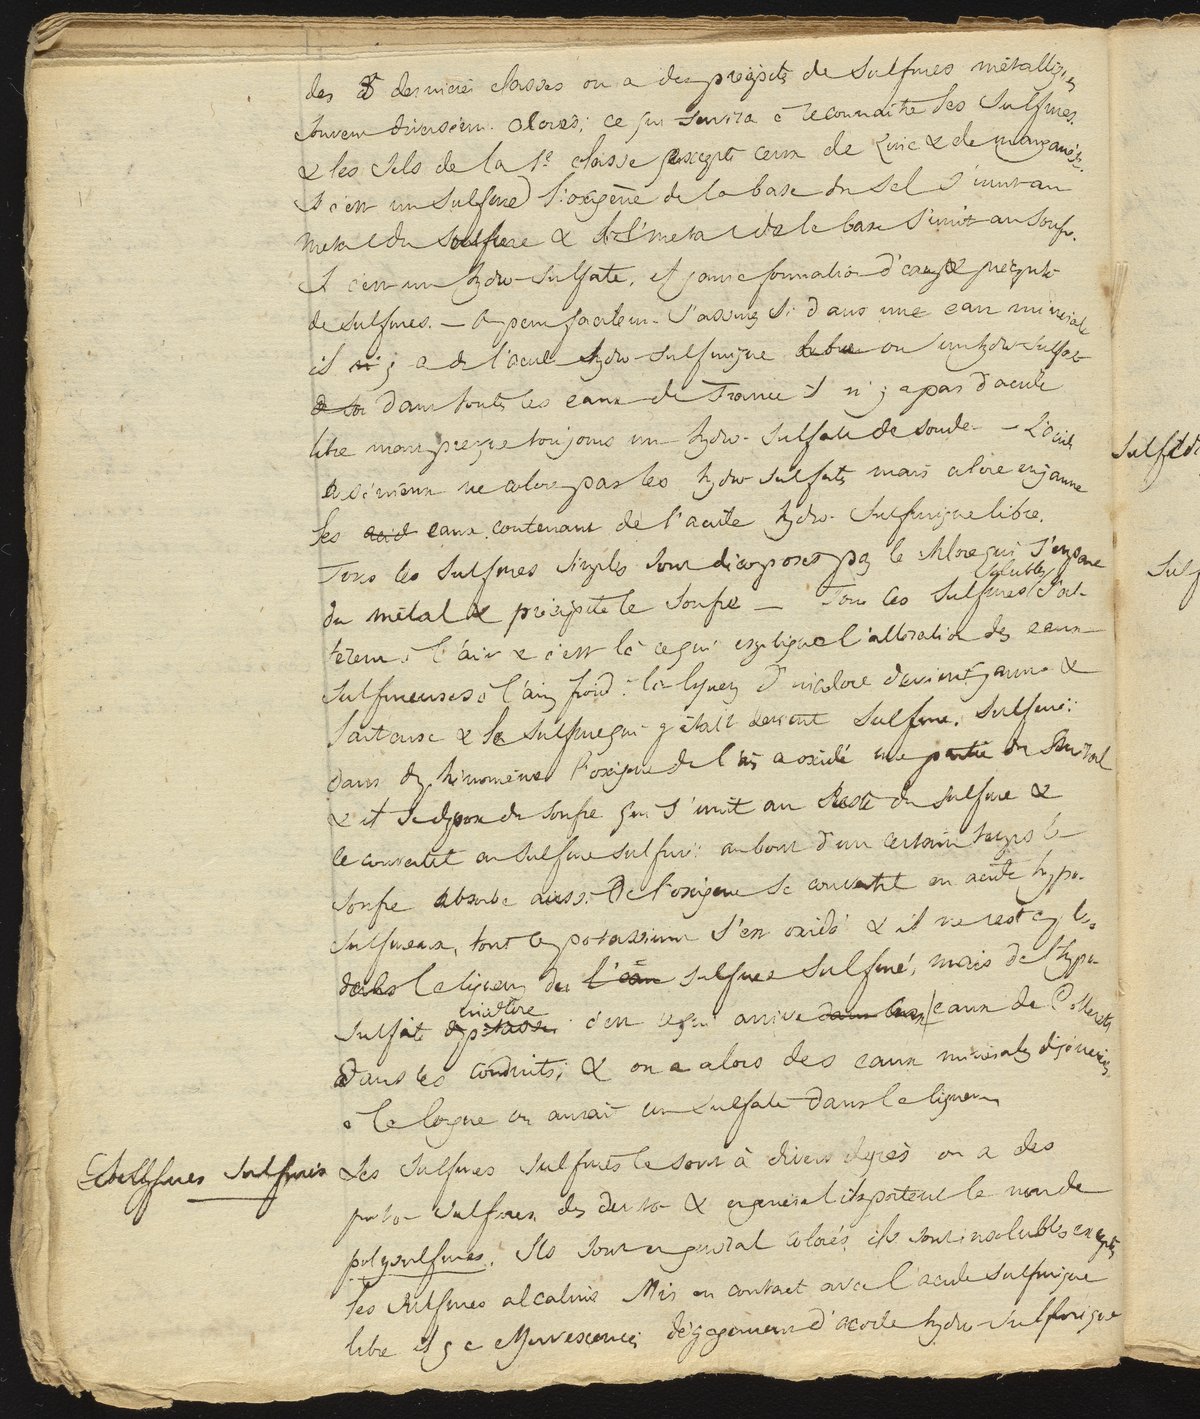 des dernières classes on a des précipités de sulfures métalliques
souvent diversem. colorés; ce qui servira à reconnaitre les sulfures.
& les sels de la 1e classe excepté ceux de zinc & de manganèse.
si c'est un sulfure l'oxigène de la base du sel s'unit au
metal du sulfure & le metal de la base s'unit au soufre.
si c'est un hydro-sulfate, il y aura formation d'eau & précipité
de sulfures. — on peut facilem. s'assurer si dans une eau minérale
il y a de l'acide hydro-sulfurique libre ou un hydro-sulfate
dans toutes les eaux de France il n'y a pas d'acide
libre mais presque toujours un hydro-sulfate de soude — L'acide
arsénieux ne colore pas les hydro sulfates mais colore en jaune
les acid eaux contenant de l'acide hydro-sulfurique libre.
Tous les sulfures simples sont décomposés par le chlore qui s'empare
du métal & précipite le soufre — Tous les sulfures solubles s'al-
tèrent à l'air & c'est là ce qui explique l'altération des eaux
sulfureuses à l'air froid: la liqueur d'incolore devient jaune &
& le sulfure qui y était devient sulfure sulfuré:
dans ce phénomène l'oxigène de l'air a oxidé une partie du
& il se dépose du soufre qui s'unit au reste du sulfure &
le convertit en sulfure sulfuré: au bout d'un certain temps le
soufre absorbe aussi de l'oxigène se convertit en acide hypo-
sulfureux, tout le potassium s'est oxidé & il ne reste plus
dans la liqueur du l'eau sulfure sulfuré, mais de l'hypo-
sulfite de potasse c'est ce qui arrive dans les eaux de
dans les conduits; & on a alors des eaux minérales dégénérées
à la longue on aurait un sulfate dans la liqueur
Sulfures sulfurés
Les sulfures sulfurés le sont à divers degrés on a des
proto-sulfures, des deuto- & en general ils portent le nom de
polysulfures. Ils sont en général colorés, ils sont insolubles excepté
les sulfures alcalins. Mis en contact avec l'acide sulfurique
libre il y a effervescence; dégagement d'acide hydro-sulfurique